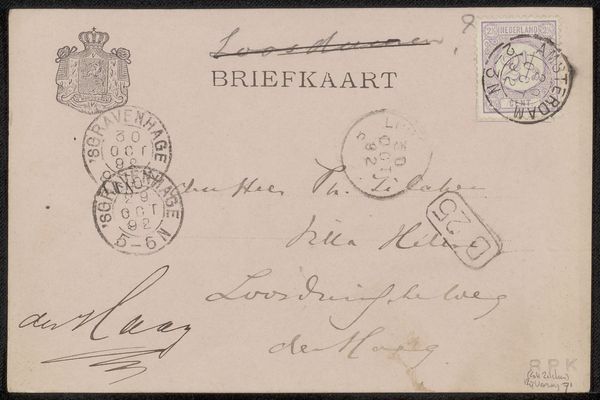 Loosduinen
BRIEFKAART
2½ NEDERLAND 2½
CENT
AMSTERDAM
'SGRAVENHAGE
30
OCT
92
'SGRAVENHAGE
29
OCT
92
5-6 N
30
OCT
92
den Heer Ph. Zilcken
Villa Hélène
B 25
Loosduinsche weg
den Haag
den Haag
RPK